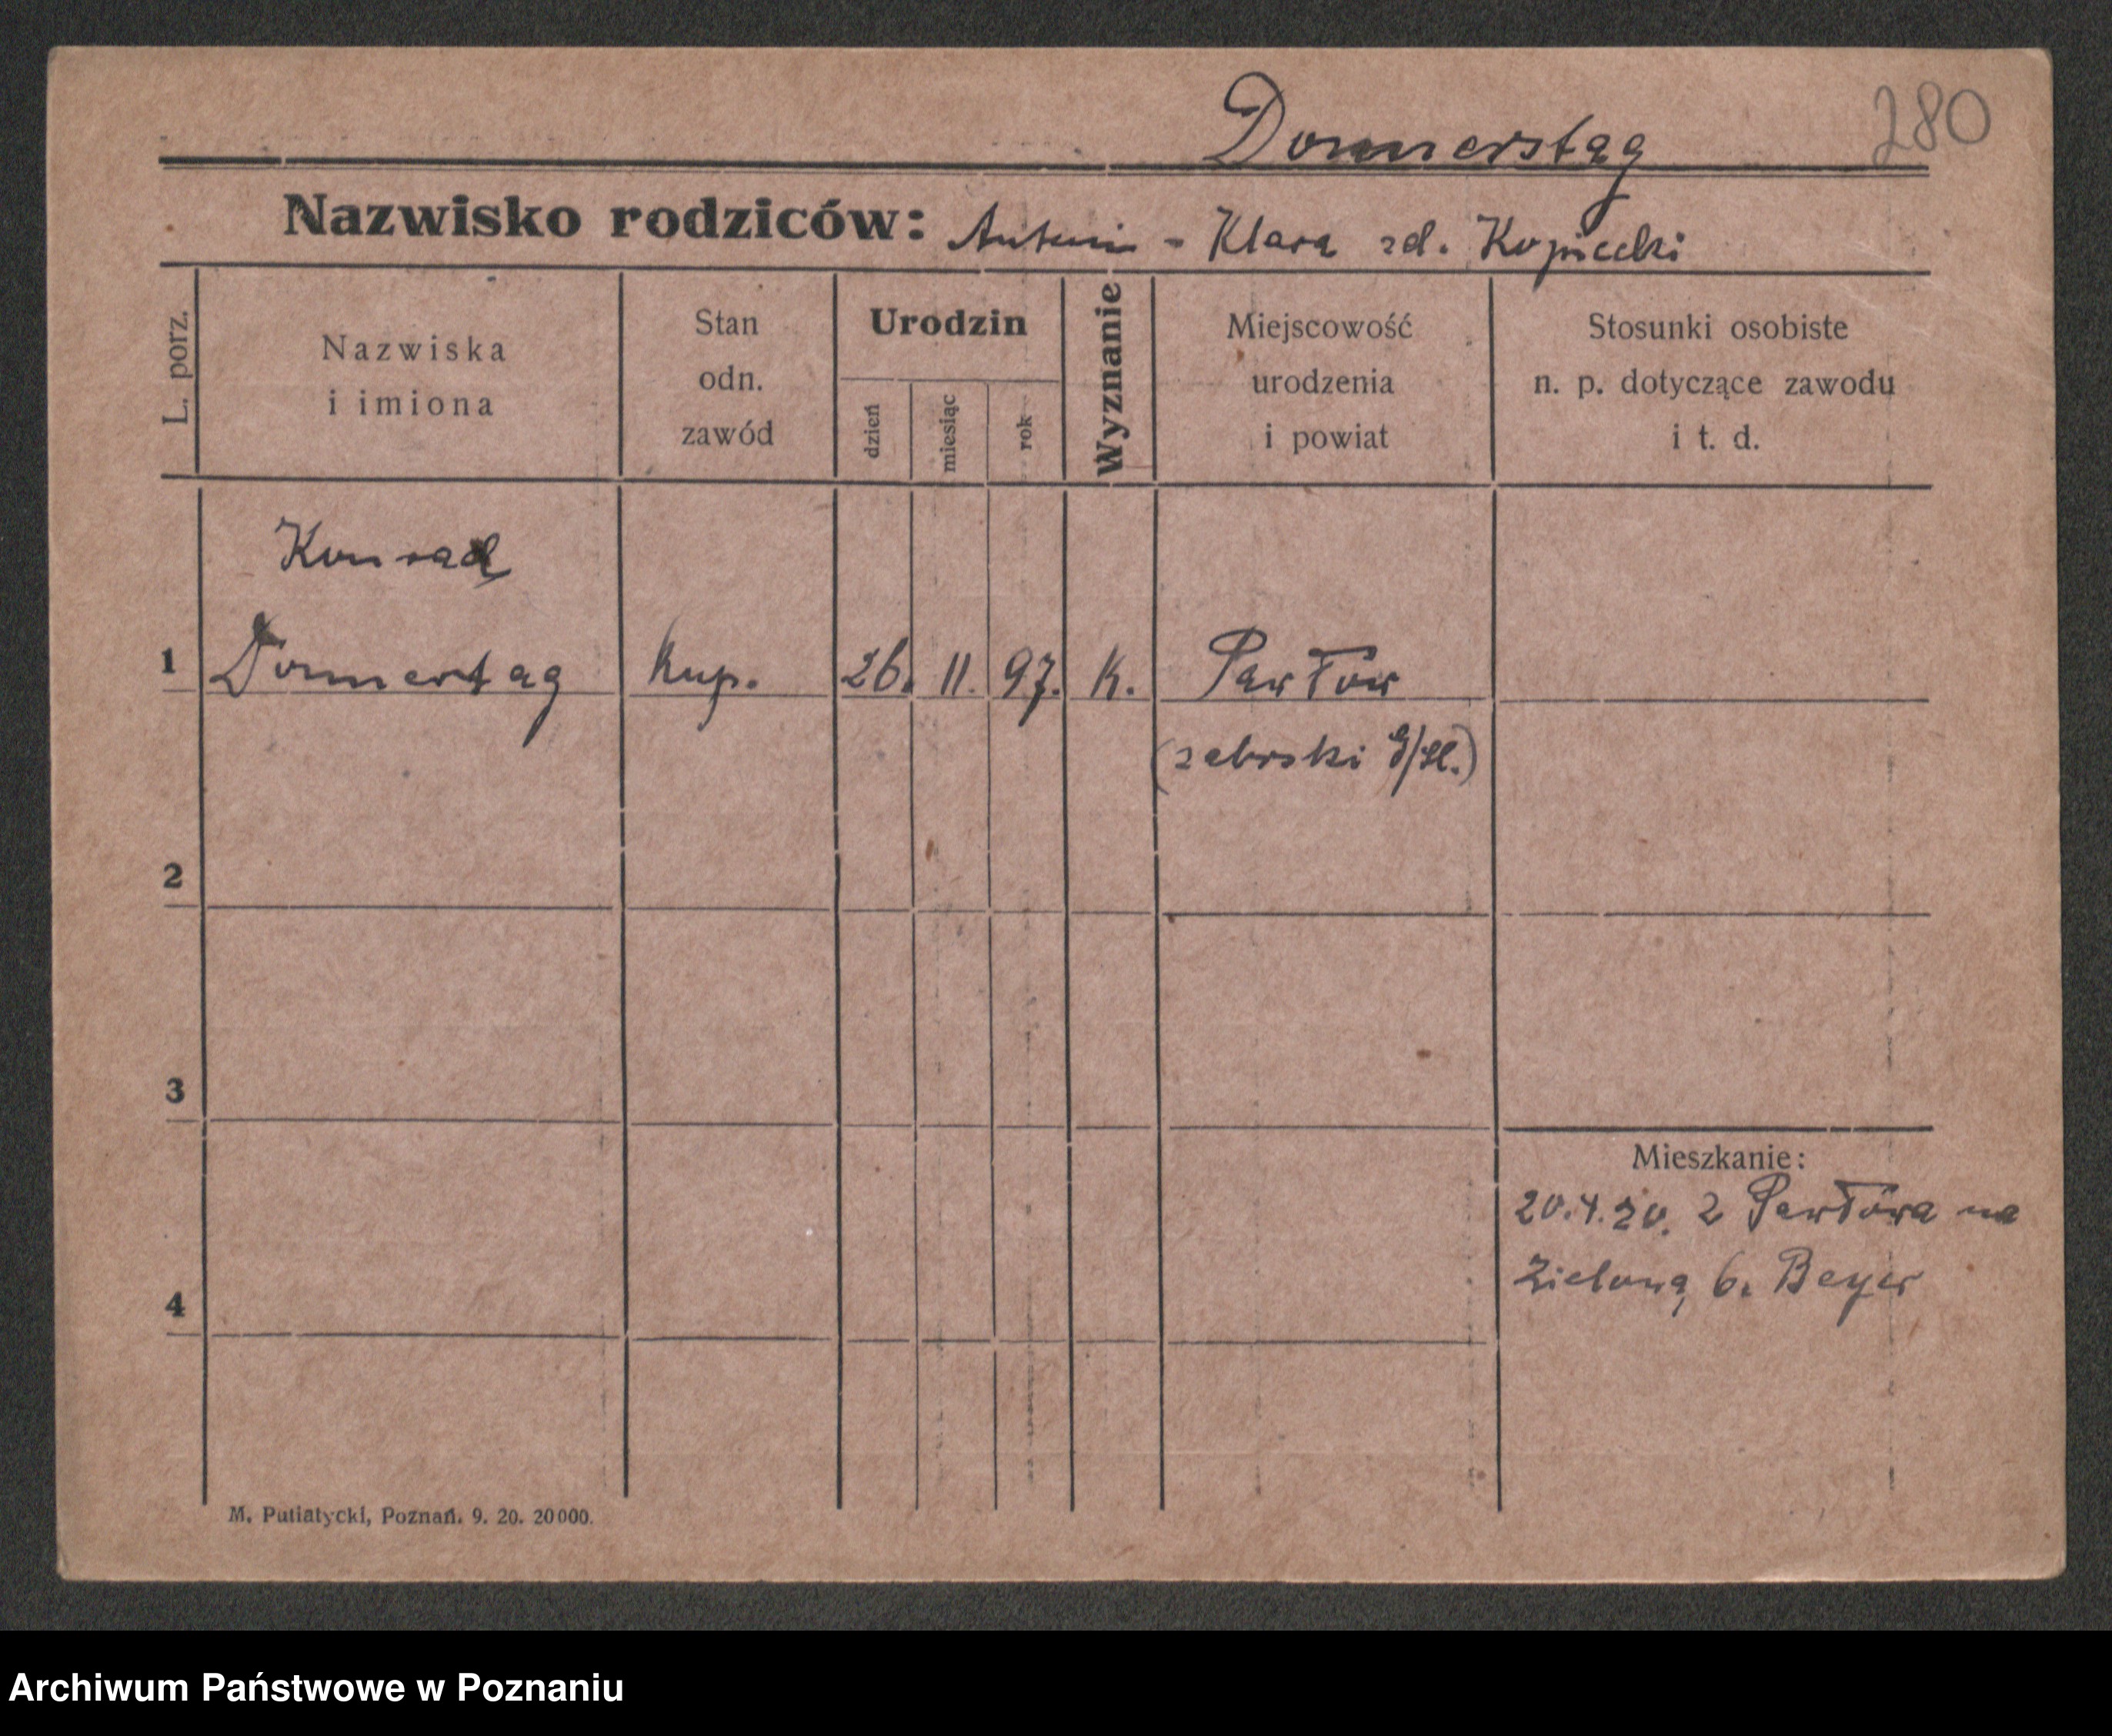 Donnerstag
280
Nazwisko rodziców: Antoni - Klara zd. Kopiecki
L. porz.
Nazwiska
i imiona
Stan
odn.
zawód
Urodzin
dzień
miesiąc
rok
Wyznanie
Miejscowość
urodzenia
i powiat
Stosunki osobiste
n. p. dotyczące zawodu
i t. d.
Konrad
1 Donnertag kup. 26. 11. 97. K. Pawłów
(zabrski G/Śl.)
2
3
Mieszkanie:
20.4.20. z Pawłowa na
Zieloną 6. Beyer
4
M. Putiatycki, Poznań. 9. 20. 20000.
Archiwum Państwowe w Poznaniu